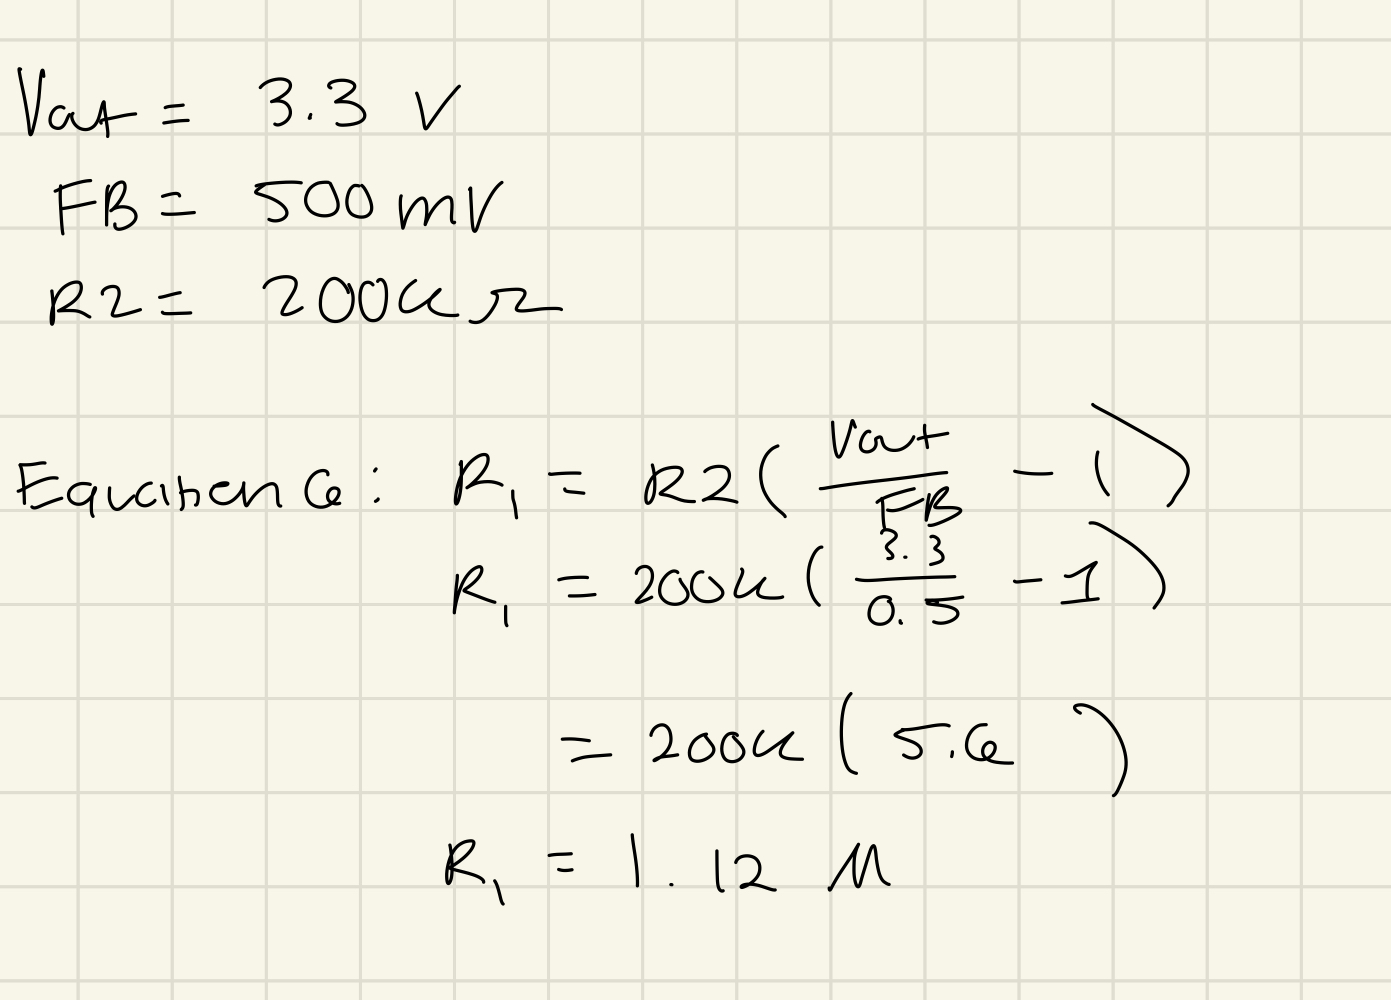 Vout = 3.3 V
FB = 500 mV
R2 = 200k Ω
R₁ = R2 ( Vout / FB - 1 )
R₁ = 200k ( 3.3 / 0.5 - 1 )
= 200k ( 5.6 )
R₁ = 1.12 M